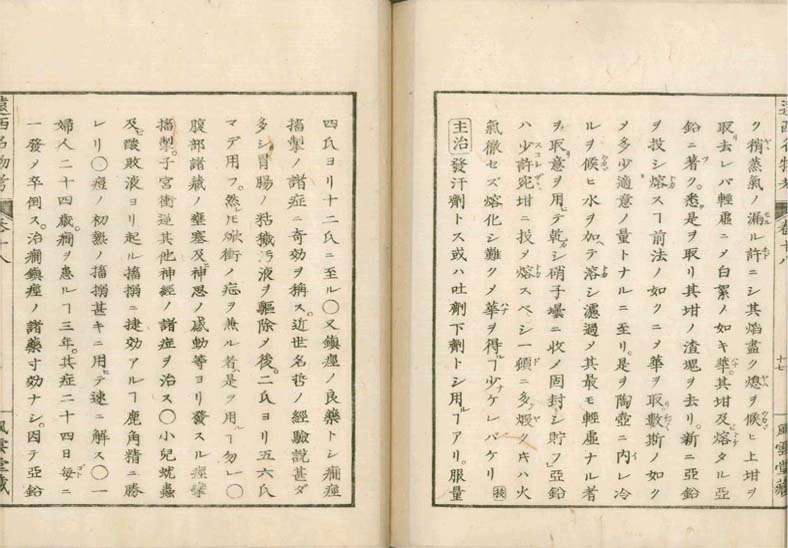 ク稍蒸氣ノ漏ル許ニシ其焰盡ク熄ヲ候ヒ上坩ヲ
取去レバ輕虛ニメ白絮ノ如キ華其坩及熔タル亞
鉛ニ著ク。悉是ヲ取リ其坩ノ渣塊ヲ去リ。新ニ亞鉛
ヲ投シ熔スヿ前法ノ如クニメ華ヲ取。數斯ノ如ク
メ多少適意ノ量トナルニ至リ。是ヲ陶壺ニ内レ冷
ルヲ候ヒ水ヲ加テ溶シ濾過メ其最モ輕虛ナル者
ヲ取。意ヲ用テ乾シ硝子壜ニ收メ固封シ貯フ。亞鉛
ハ少許宛坩ニ投メ熔スベシ一頓ニ多煆クキハ火
氣徹セズ熔化シ難クメ華ヲ得ルヿ少ケレバケリ
主治 發汗劑トス或ハ吐劑下劑トシ用ルヿアリ。服量
遠西名物考 卷十八 十七 風雲堂藏
四氏ヨリ十二氏ニ至ル〇又鎭痙ノ良藥トシ癎痙
搐掣ノ諸症ニ奇効ヲ稱ス。近世名哲ノ經驗説甚ダ
多シ胃腸ノ粘黐汚液ヲ驅除メ後。二氏ヨリ五六氏
マデ用フ。然ルニ焮衝ノ症ヲ兼ル者ハ是ヲ用ルヿ勿レ〇
腹部諸藏ノ壅塞及神思ノ感動等ヨリ發スル痙攣
搐掣。子宮衝逆其他神經ノ諸症ヲ治ス〇小兒蚘蟲
及酸敗液ヨリ起ル搐搦ニ捷効アルヿ鹿角精ニ勝
レリ〇痘ノ初熱ノ搐搦甚キニ用テ速ニ解ス〇一
婦人二十四歲。癎ヲ患ルヿ三年。其症二十四日每ニ
一發メ卒倒ス。治癎鎭痙ノ諸藥寸効ナシ。因テ亞鉛
遠西名物考 卷十八 風雲堂藏